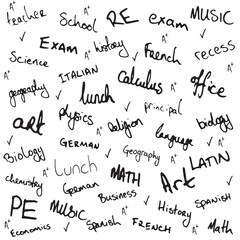 teacher A+ School RE exam MUSIC
EXAM A+ history French A+ recess
Science ITALIAN calculus office
geography A+ lunch principal A+
art physics religion language biology
Biology GERMAN A+ Geography A+ LATIN
chemistry Lunch MATH Art
A+ German Business History SPANISH
PE MUSIC A+ Spanish FRENCH A+ Math
A+ Economics